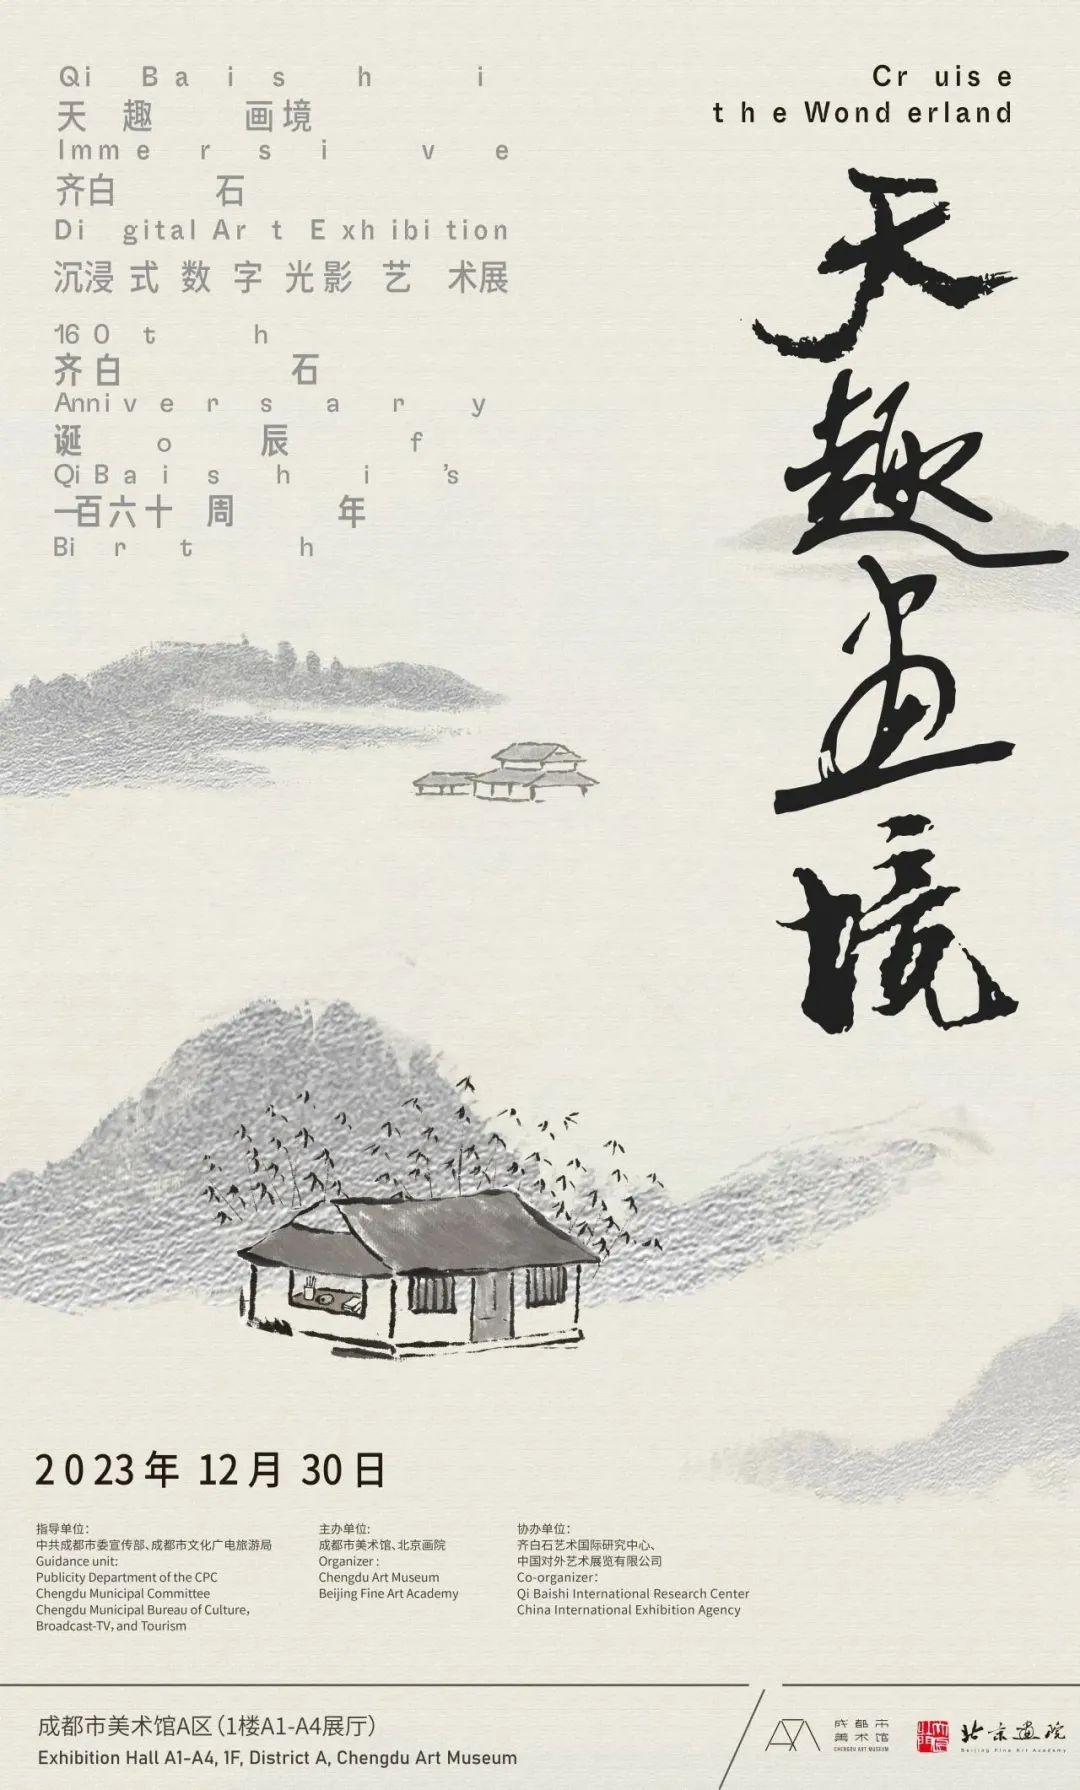 Qi Baishi
天趣画境
Immersive
齐白石
Digital Art Exhibition
沉浸式数字光影艺术展
160th
齐白石
Anniversary
诞o辰f
Qi Baishi's
一百六十周年
Birth
Cruise
the Wonderland
天趣画境
2023年 12月 30日
指导单位：
中共成都市委宣传部、成都市文化广电旅游局
Guidance unit:
Publicity Department of the CPC
Chengdu Municipal Committee
Chengdu Municipal Bureau of Culture,
Broadcast-TV, and Tourism
主办单位:
成都市美术馆、北京画院
Organizer :
Chengdu Art Museum
Beijing Fine Art Academy
协办单位：
齐白石艺术国际研究中心、
中国对外艺术展览有限公司
Co-organizer：
Qi Baishi International Research Center
China International Exhibition Agency
成都市美术馆A区（1楼A1-A4展厅）
Exhibition Hall A1-A4, 1F, District A, Chengdu Art Museum
成都市
美术馆
CHENGDU ART MUSEUM
北京画院
Beijing Fine Art Academy